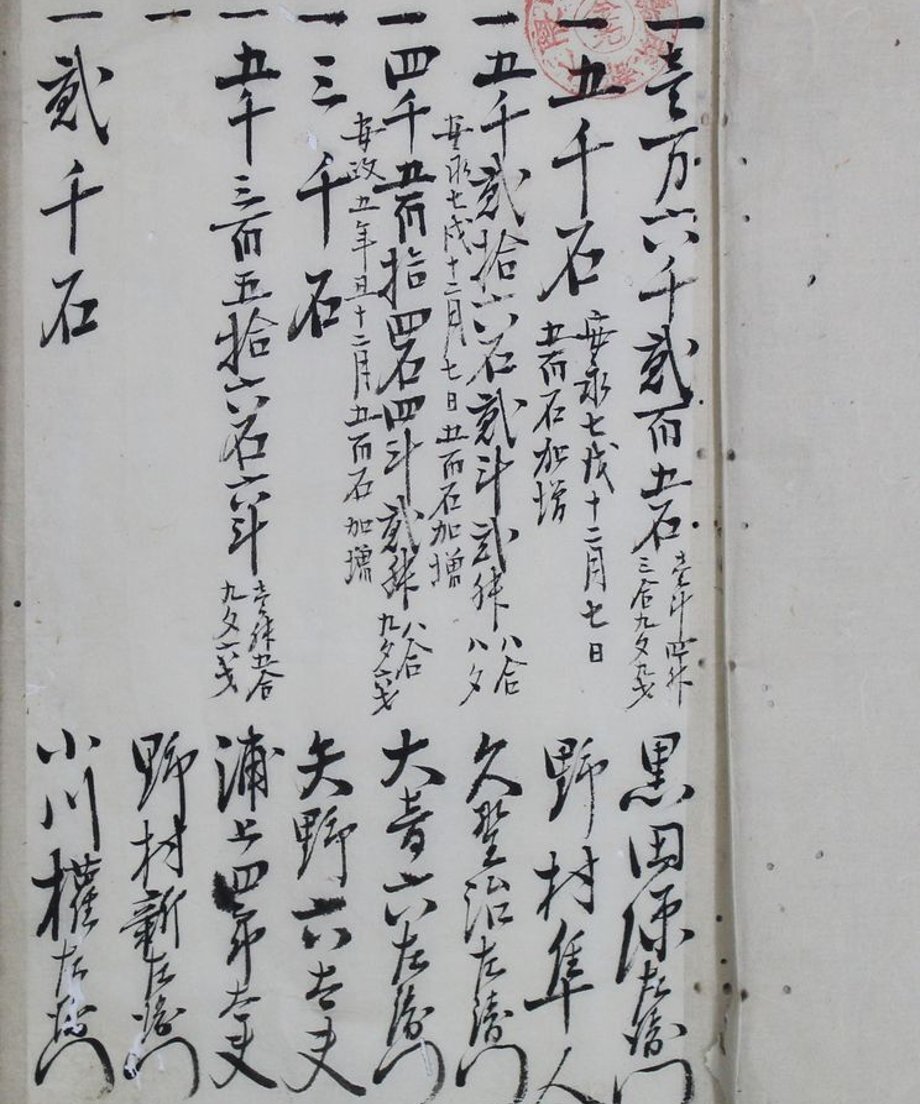 一壱万六千弐百五石
壱斗四升
三合九夕九才
黒田源左衛門
一五千石
安永七戌十二月七日
五百石加増
野村隼人
一五千弐拾六石弐斗弐升
八合
八夕
久野治左衛門
安永七戌十二月七日五百石加増
一四千五百拾四石四斗弐升
八合
九夕六才
大音六左衛門
安政五年十二月五百石加増
一三千石
矢野六太夫
一五千三百五拾六石六斗
壱升五合
九夕六才
浦上四郎太夫
一
野村新左衛門
一弐千石
小川権左衛門